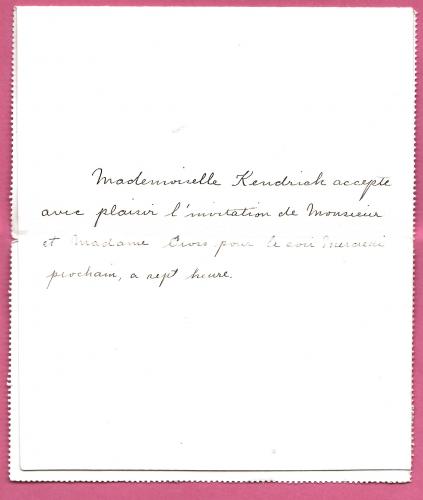 Mademoiselle Kendrick accepte
avec plaisir l'invitation de Monsieur
et Madame Cross pour le soir Mercredi
prochain, a sept heure.